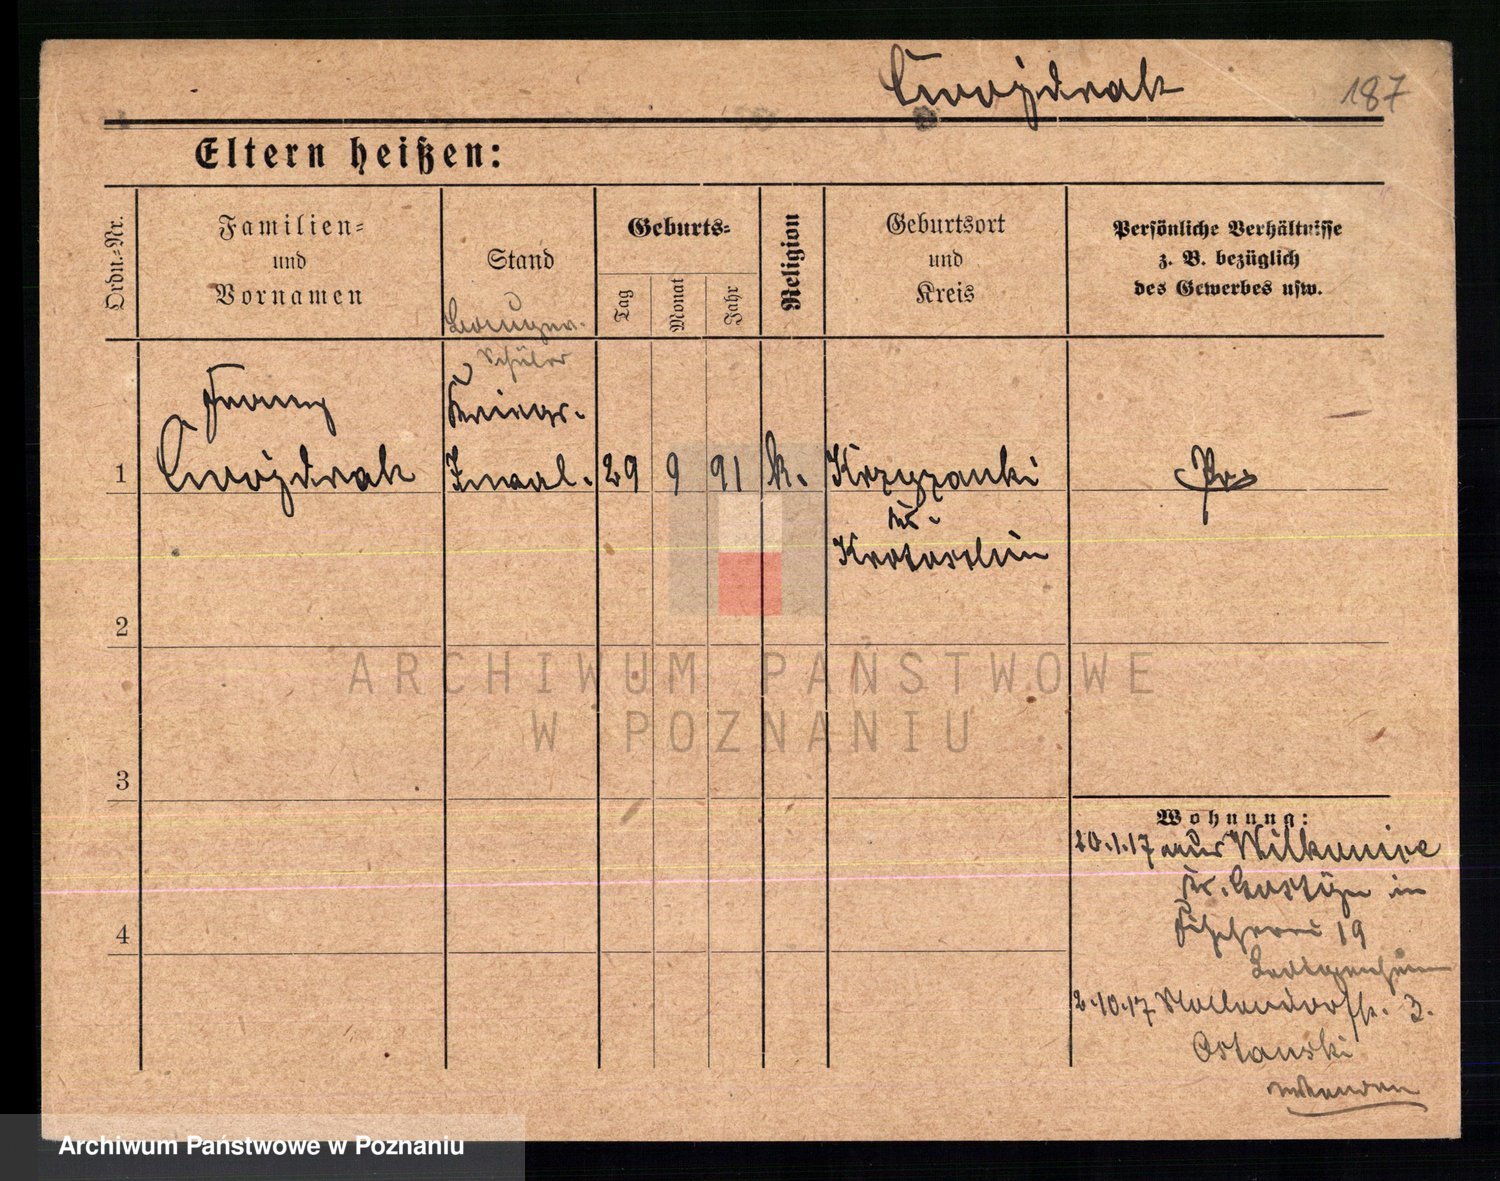 Cwojdrak 187
Eltern heißen:
Ordn.-Nr.
Familien-
und
Vornamen
Stand
Geburts-
Tag
Monat
Jahr
Religion
Geburtsort
und
Kreis
Persönliche Verhältnisse
z. B. bezüglich
des Gewerbes usw.
Schüler
Franz
Kriegs-
1 Cwojdrak Inval. 29 9 91 k. Krzyzanki Pr
Kr.
Krotoschin
2
3
4
Wohnung:
20.1.17 aus Wilkonice
Kr. Gostyn in
Fischerei 19
2.10.17 3.
Ostanski
vorhanden
ARCHIWUM PAŃSTWOWE
W POZNANIU
Archiwum Państwowe w Poznaniu